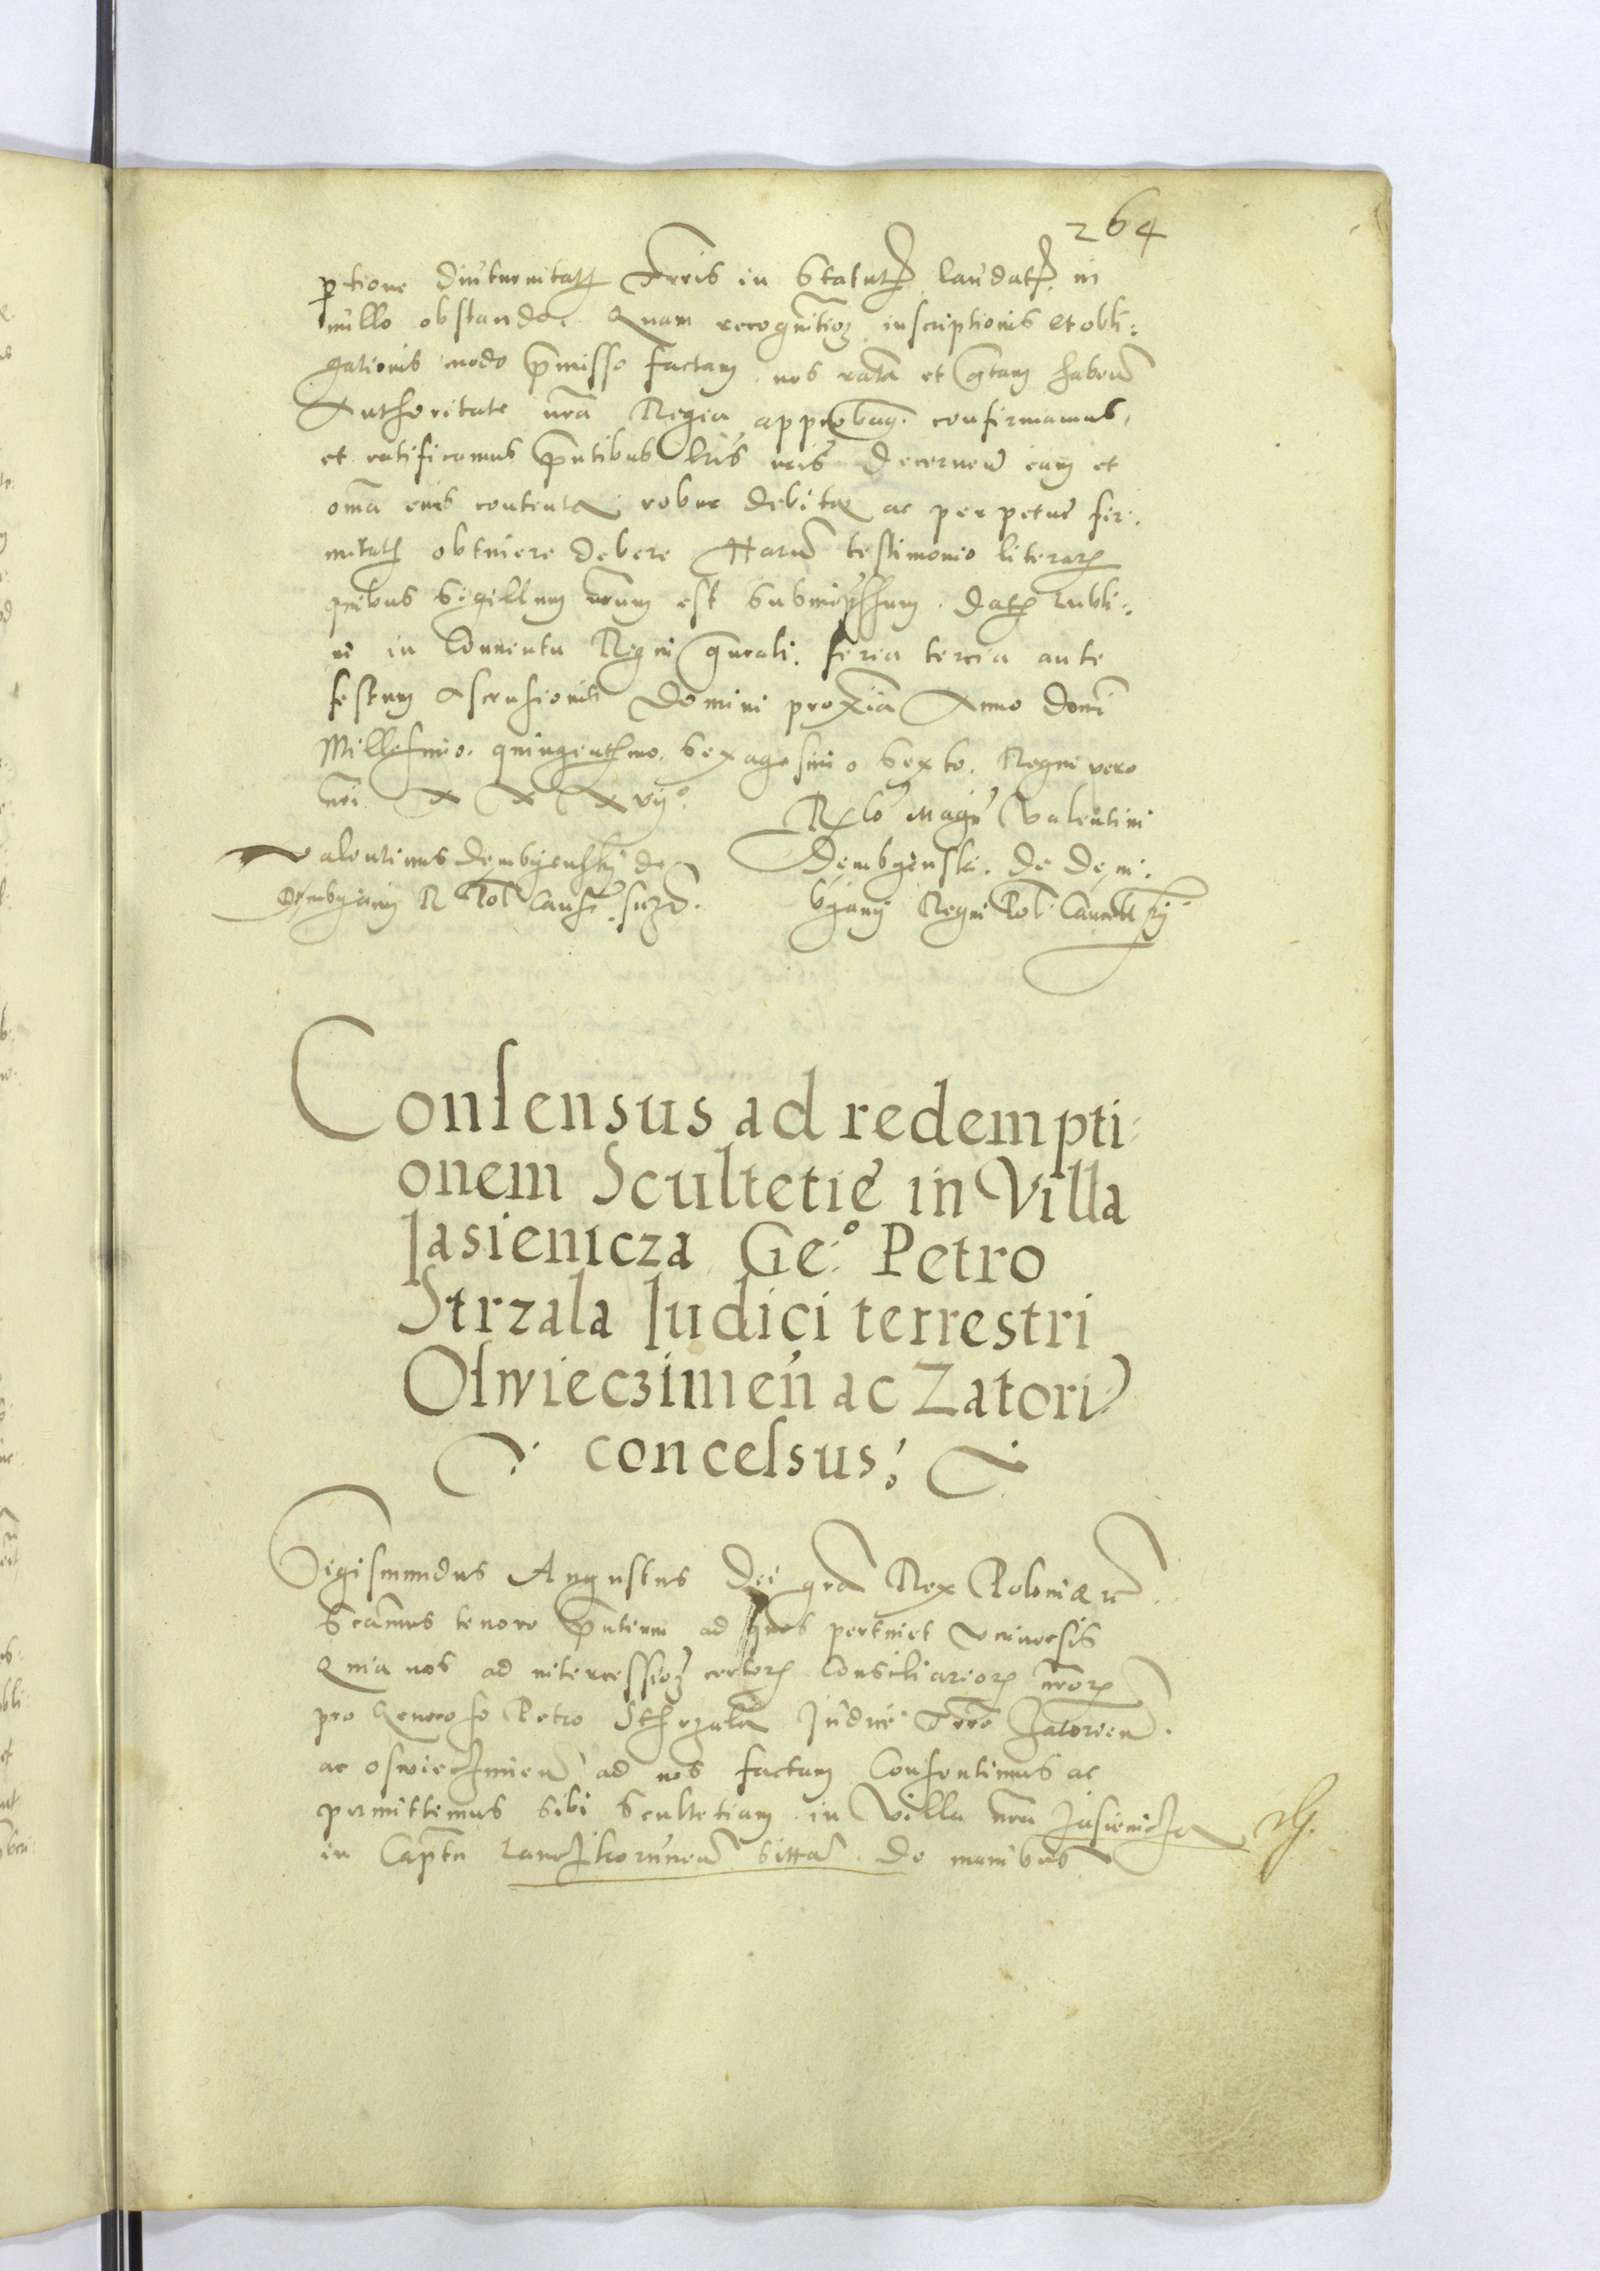 264
ptione diuturnitatis Terris in Statutis laudatis in
nullo obstandoc Quam recognitioz inscriptionis et obli:
gationis modo pmisso factam nos rata et gtam haben
Authoritate nra Regia approbamus confirmamus,
et ratificamus pntibus lris nris Decernen eam et
oma eius contenta robur debite ac perpetue fir:
mitatis obtinere debere Harum testimonio literarum
quibus Sigillum nrum est Subimpssum. Datum Lubli:
ni in Conuentu Regni gnrali. feria tercia ante
festum Ascensionis Domini proxia Anno Domi
Millesimo. quingentesimo. Sexagesimo Sexto. Regni vero
nri XXXvijº.
Rlo Magci Valentini
Valentinus Dembyensky de
Dembienski. De Dem:
Dembyany R Pol Canc: sszt.
byany Regni Pol: Cancell rij
Consensus ad redempti:
onem Scultetie in Villa
Jasienicza Ge:º Petro
Strzala Judici terrestri
Oswieczimen ac Zatori
concessus:
Sigismundus Augustus Dei gra Rex Poloniæ rc
Scamus tenore pntium ad quos pertinet vniuersis
Quia nos ad intercessioz certorum Consiliariorum nrorum
pro Generoso Petro Sthrzala Judice Trro Zatorien.
ac oswieczimien ad nos factam Consentimus ac
permittimus Sibi Scultetiam in Villa nra Jasienicza
in Capttu Lanczkorunen sittam De manibus